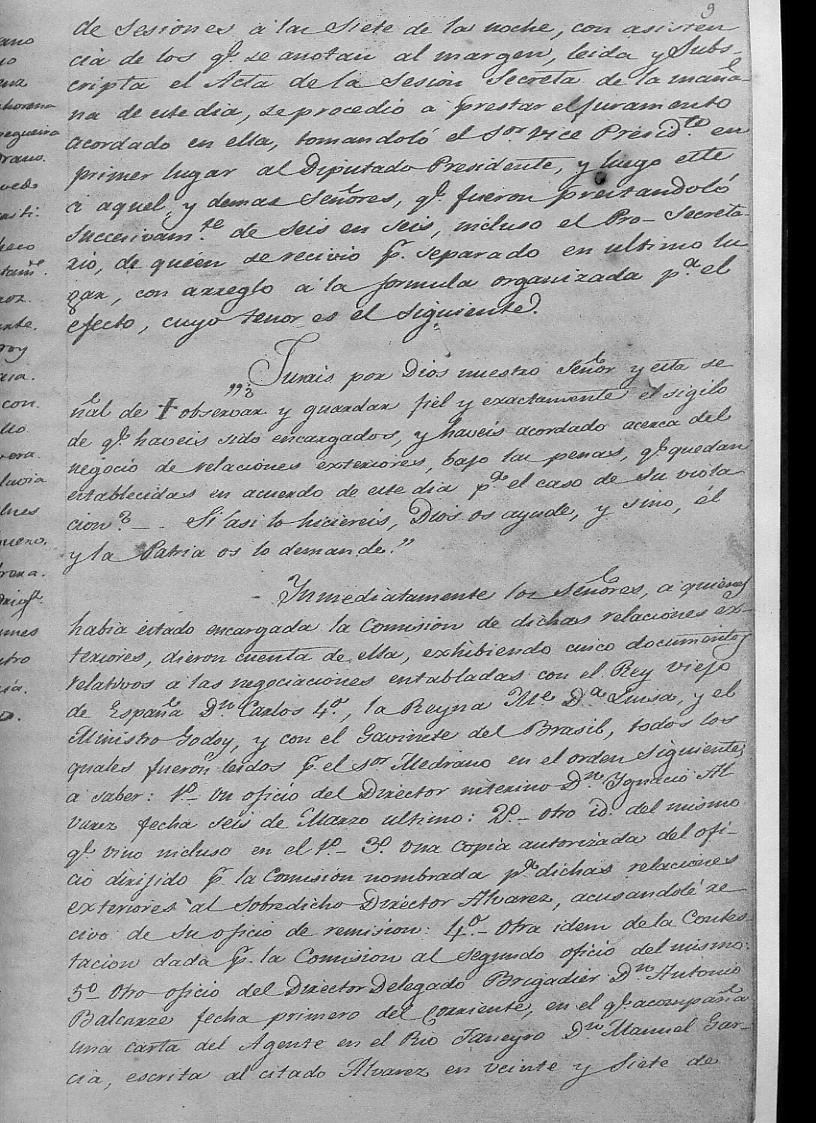 9
de Sesiones á las Siete de la noche, con asisten
cia de los qe. se anotan al margen, leida y Subs-
cripta el Acta de la Sesion Secreta de la maña-
na de este dia, se procedió a prestar el juramento
acordado en ella, tomandoló el Sor. Vice Presidte. en
primer lugar al Diputado Presidente, y luego este
á aquel, y demas Señores, qe. fueron prestandoló
Succesivamte. de seis en seis, incluso el Pro-Secreta
rio, de quien se recivió pr. separado en ultimo lu
gar, con arreglo á la formula organizada pa. el
efecto, cuyo tenor es el siguiente.
"¿Jurais por Dios nuestro Señor y esta se
ñal de † observar y guardar fiel y exactamente el sigilo
de qe. haveis sido encargados, y haveis acordado acerca del
negocio de relaciones exteriores, bajo las penas, qe. quedan
establecidas en acuerdo de este dia pa. el caso de su viola
cion? Si asi lo hiciereis, Dios os ayude, y sino, él
y la Patria os lo demande."
Inmediatamente los Señores, a quienes
habia estado encargada la Comision de dichas relaciones ex-
teriores, dieron cuenta de ella, exhibiendo cinco documentos
relativos a las negociaciones entabladas con el Rey viejo
de España Dn. Carlos 4º, la Reyna Me. Da. Luisa, y el
Ministro Godoy, y con el Gavinete del Brasil, todos los
quales fueron leidos pr. el sor. Medrano en el orden siguiente
a saber: 1º- Un oficio del Director interino Dn. Ygnacio Al
varez fecha seis de Marzo ultimo: 2º- otro id. del mismo
qe. vino incluso en el 1º- 3º. Una copia autorizada del ofi-
cio dirijido pr. la Comision nombrada pa. dichas relaciones
exteriores al sobredicho Director Alvarez, acusandolé re
civo de su oficio de remision: 4º- Otra idem de la Contes
tacion dada pr. la Comision al segundo oficio del mismo:
5º Otro oficio del Director Delegado Brigadier Dn. Antonio
Balcarze fecha primero del Corriente, en el qe. acompaña
una carta del Agente en el Rio Janeyro Dn. Manuel Gar-
cia, escrita al citado Alvarez en veinte y siete de